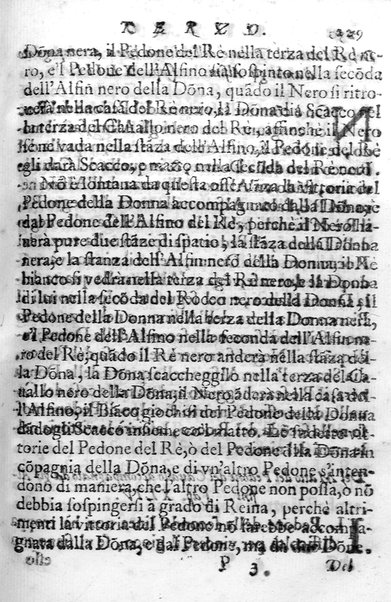 TERZO. 229
Dōna nera, il Pedone del Rè nella terza del Rè ne-
ro, e'l Pedone dell'Alfino sia sospinto nella secōda
dell'Alfin nero della Dōna, quādo il Nero si ritro-
terza del Cauallo nero del Re, affinche il Nero
se ne vada nella stāza dell'Alfino, il Pedone del Rè
egli darà Scacco, e matto nella
Nō è lontana da questa la vittoria del
Pedone della Donna accompagnato dalla Dōna, e
dal Pedone dell'Alfino del Rè, perche il Nero
nerà pure due stāze di spatio; la stāza della Dōna
nera, e la stanza dell'Alfin nero della Donna; il Rè
bianco si vedra nella terza del Rè nero, e la Donna
di lui nella secōda del Rocco nero della Dōna, il
Pedone della Donna nella terza della Donna nera,
e'l Pedone dell'Alfino nella seconda dell'Alfino ne-
ro del Rè, quādo il Rè nero anderà nella stāza del
la Dōna, la Dōna scaccheggi lo nella terza del Ca-
uallo nero della Dōna, il Nero ādarà nella casa del
l'Alfino, il Biāco giochi il Pedone della Dōna
dādogli Scacco insieme
torie del Pedone del Rè, ò del Pedone della Dōna in
cōpagnia della Dōna, e di vn'altro Pedone s'inten-
dono di maniera, che l'altro Pedone non possa, ò nō
debbia sospingersi à grado di Reina, perche altri-
menti la vittoria del Pedone nō sarebbe accompa-
gnata dalla Dōna, e dal Pedone, ma da due Dōne.
P 3. Del